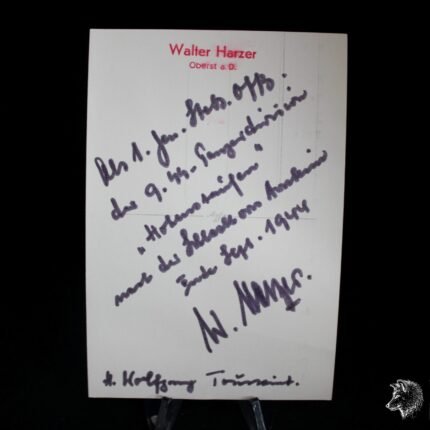 Walter Harzer
Oberst a.D.
Als 1. Gen. Stbs. Offz.
der 9. SS-Panzerdivision
"Hohenstaufen"
nach der Schlacht von Arnheim
Ende Sept. 1944
W. Harzer.
H. Wolfgang Toussaint.